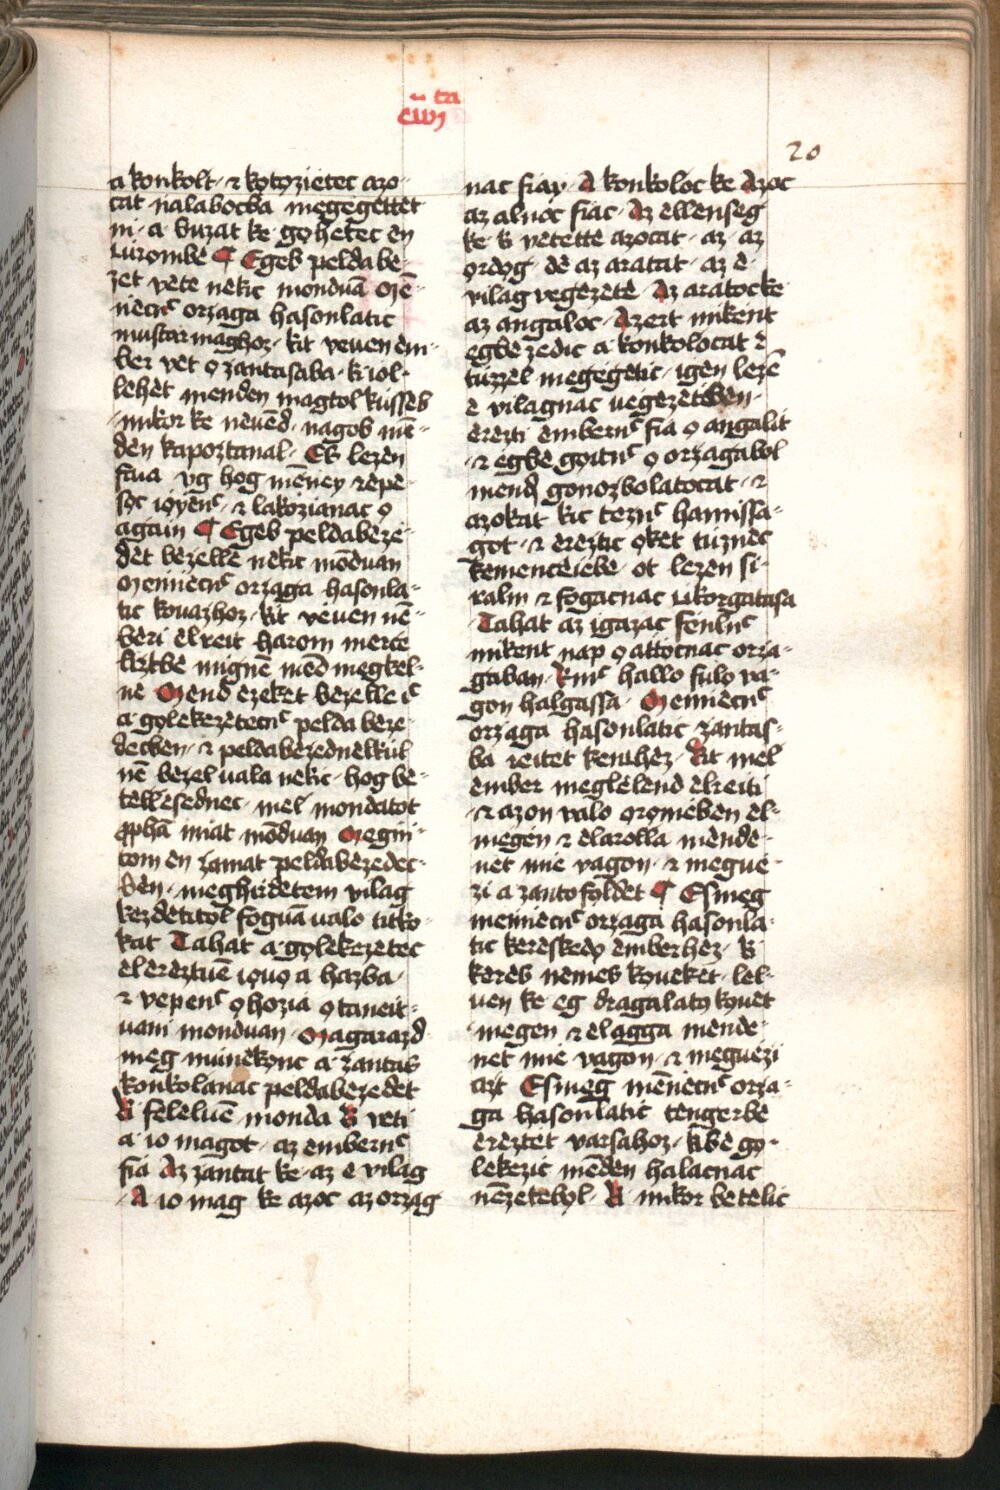 20
a konkolt · ⁊ kotozietec azo-
cat nalabocba megegettet
ni · a buzat ke gohetec en
ċúrombe ¶ Egeb pelda be-
zet vete nekic monduā Mē-
niecnc orzaga hasonlatic
mustar maghoz · kit veuen em-
ber vet o zantasaba · ki iol-
lehet menden magtol kusseb
mikor ke neuend · nagob mē-
den kapoztanal · Es lezen
faua vg hog mēney repe-
soc ioyēnc · ⁊ lakozianac o
again ¶ Egeb peldabeze-
det bezelle nekic mōduan
Meniecnc orzaga hasonla-
tic kouazhoz · kit veuen nē-
beri elreit harom merce
liztbe mignē mēd megkel-
ne Mend ezeket bezelle ic
a golekezetecnc pelda beze-
decben · ⁊ peldabezednelkúl
nē bezel uala nekic · hog be-
tellesednec · mel mondatot
ꝓphā miat mōduan Megni-
tom en zamat peldabezedec-
ben · meghirdetem vilag
kezdetitol foguā ualo titko-
kat Tahat a golekezetec
elereztuē iouo a hazba ·
⁊ vepenc o hozia o taneit-
uani monduan · Magarazd
meg muinekonc a zantas
konkolanac peldabezedet
Ki feleluē monda Ki veti
a io magot · az embernc
fia Az zantat ke · az e vilag
· A io mag ke azoc az orzag
nac fiay · A konkoloc ke Azoc
az aluoc fiac · Az ellenseg
ke ki vetette azocat · az · az
ordog · de az aratat · az e
vilag vegezete Az aratocke
az angaloc · Azert mikent
egbe zedic a konkolocat ⁊
túzzel megegetic · igen lezē
e vilagnac uegezeteben ·
erezti embernc fia o angalit
· ⁊ egbe goitnc o orzagabol
mend gonozbolatocat · ⁊
azokat kic teznc hamissa-
got · ⁊ ereztic oket tuznec
kemenceiebe · ot lezen si-
ralm ⁊ fogacnac ċikorgatasa
Tahat az igazac fēnlnc
mikent nap o attocnac orza-
gaban · Kinc hallo fulo va-
gon halgassa · Menniecnc
orzaga hasonlatic zantas-
ba reitet kenchez · Kit mel
ember meglelend elreiti
· ⁊ azon valo oromeben el-
megen ⁊ elarolla mende-
net mie vagon · ⁊ megue-
zi a zanto foldet ¶ Esmeg
menniecnc orzaga hasonla-
tic kereskedo emberhez · ki
keres nemes koueket · lel-
uen ke eg dragalatos kouet
megen ⁊ elagga mende-
net mie vagon · ⁊ meguezi
azt Esmeg mēniecnc orza-
ga hasonlatic tengerbe
ereztet varsahoz · kibe go-
lekezic mēden halacnac
nēzeteből · Ki mikor betelic